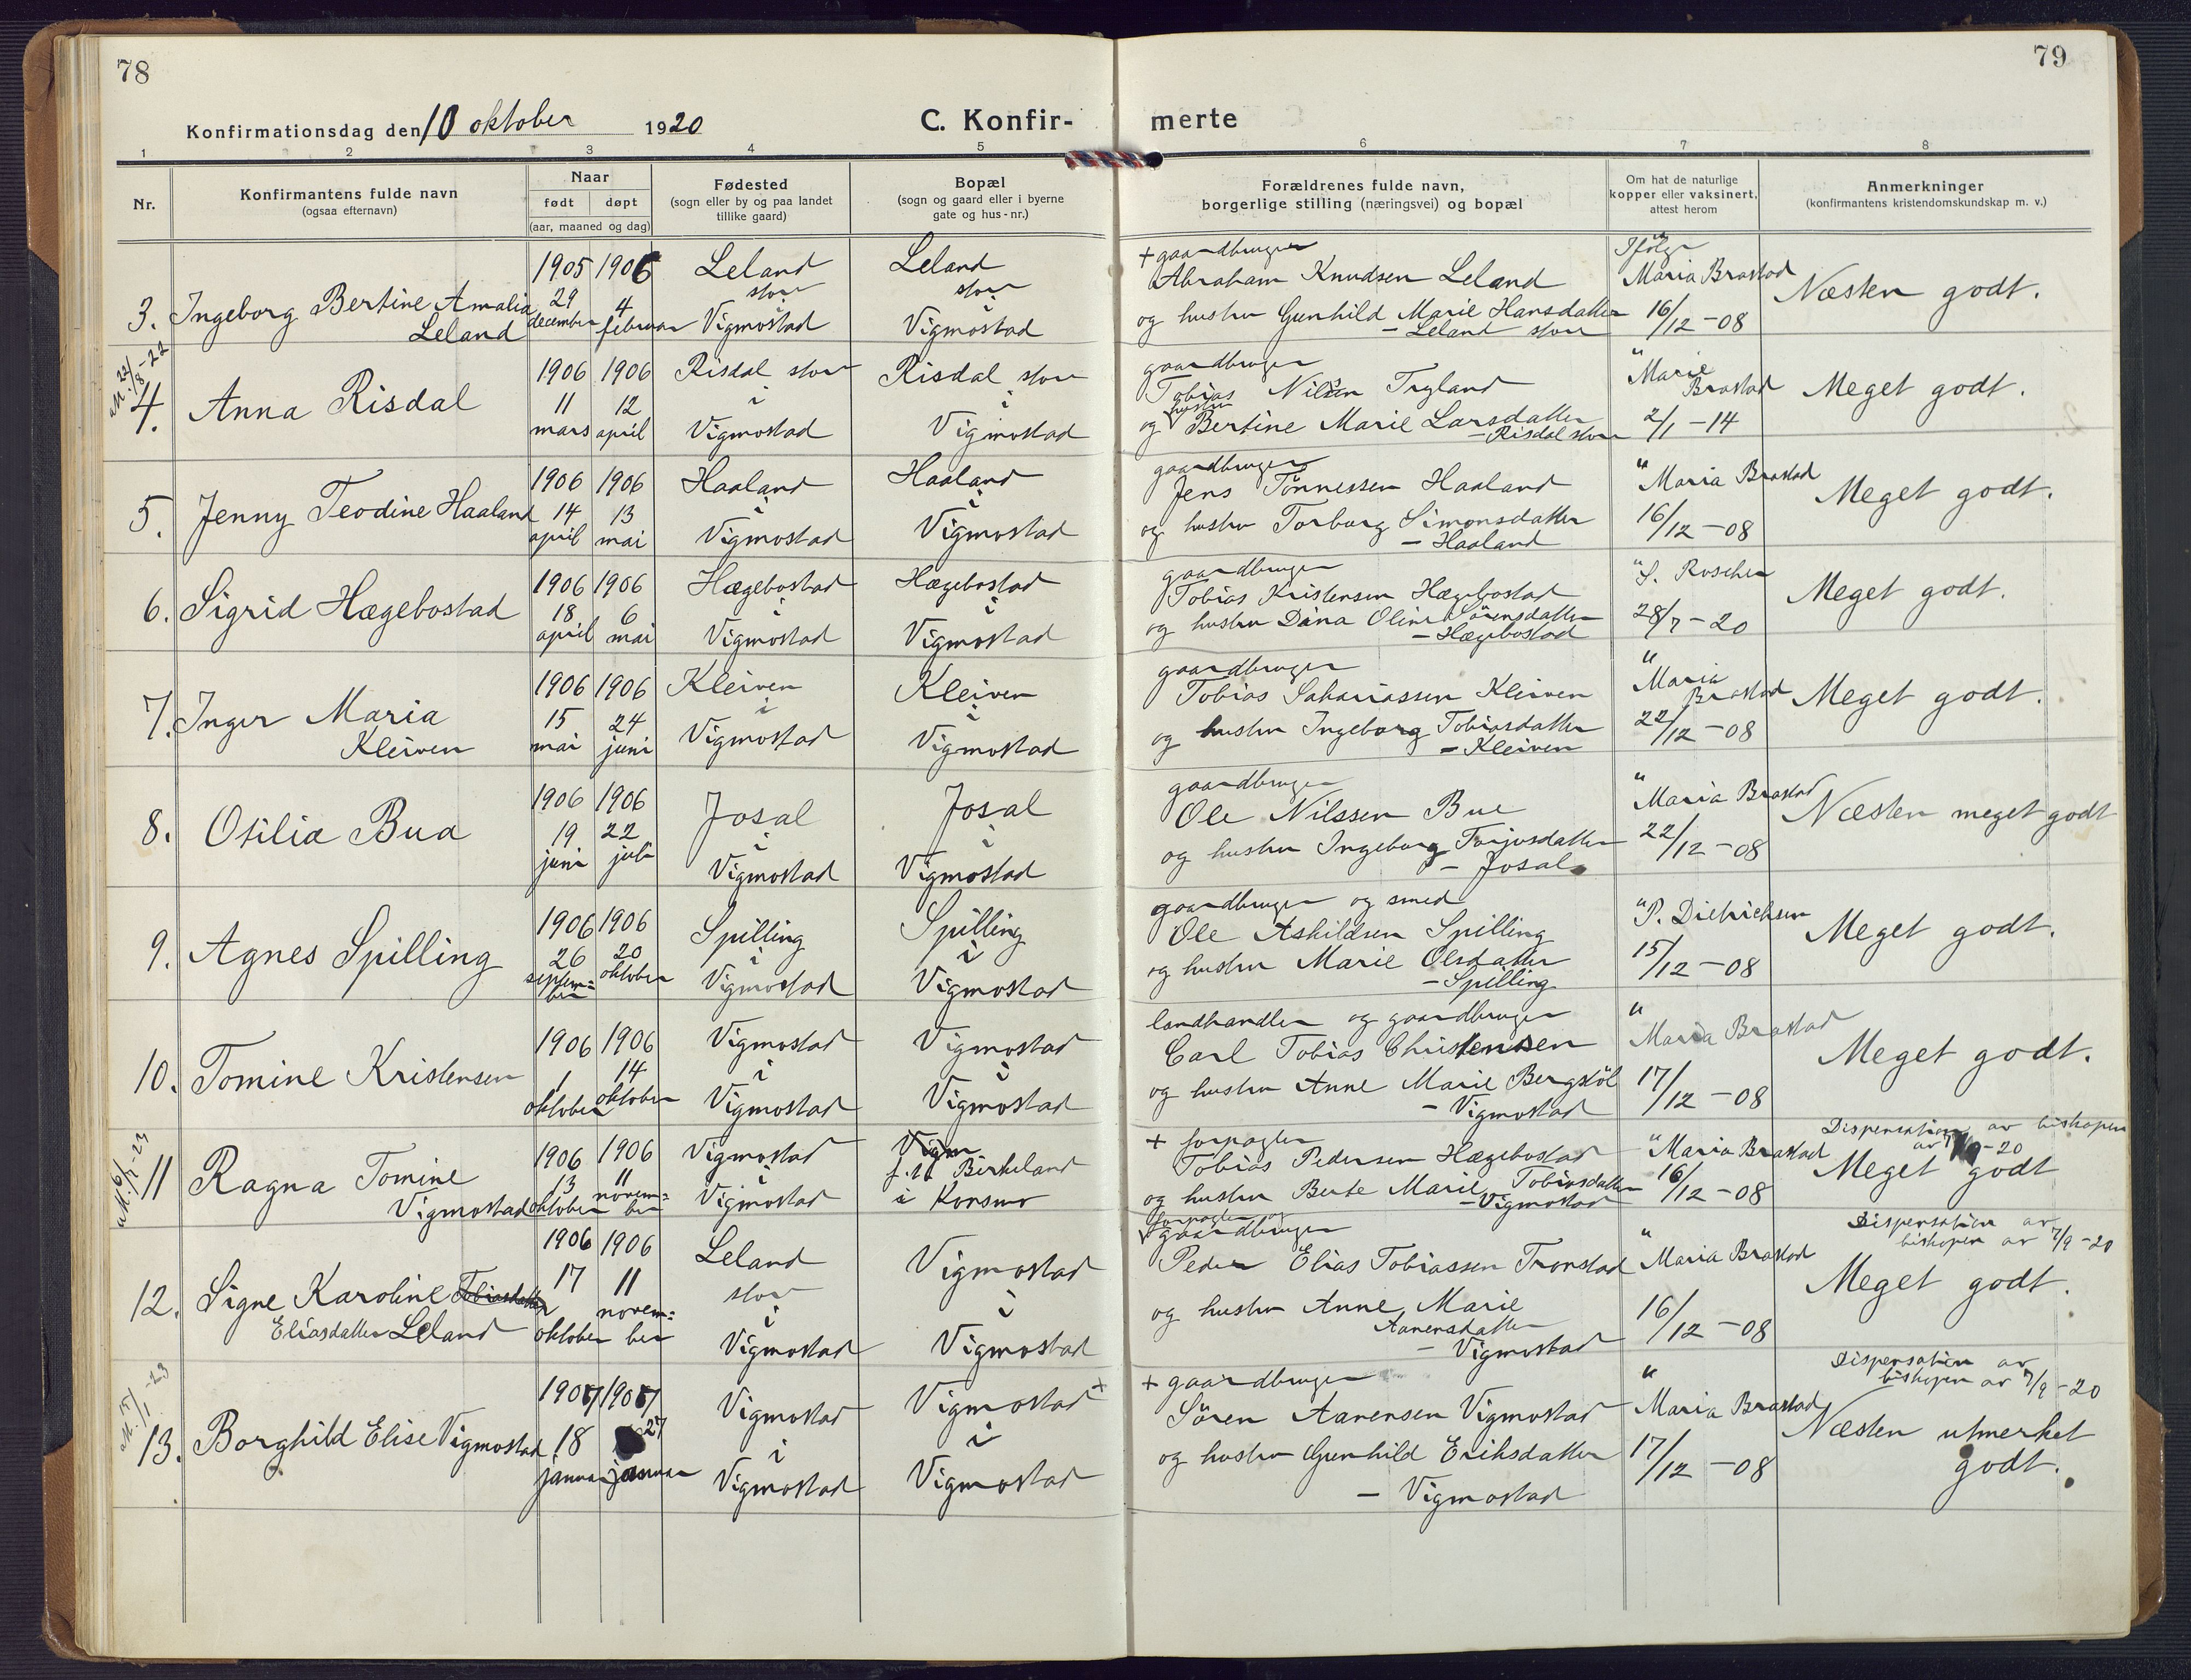 78
79
Konfirmationsdag den 10 oktober 1920
C. Konfir-
merte
1
2
3
4
5
6
7
8
Nr.
Konfirmantens fulde navn
(ogsaa efternavn)
Naar
født døpt
(aar, maaned og dag)
Fødested
(sogn eller by og paa landet
tillike gaard)
Bopæl
(sogn og gaard eller i byerne
gate og hus-nr.)
Forældrenes fulde navn,
borgerlige stilling (næringsvei) og bopæl
Om hat de naturlige
kopper eller vaksinert,
attest herom
Anmerkninger
(konfirmantens kristendomskundskap m. v.)
3. Ingeborg Bertine Amalia
Leland
1905 29 december
1906 4 februar
Leland
stor
i
Vigmostad
Leland
stor
i
Vigmostad
+ gaardbruger
Abraham Knudsen Leland
og hustru Gunhild Marie Hansdatter
- Leland stor
Ifölge
Maria Brastad
16/12 - 08
Næsten godt.
M. 22/8 - 22
4. Anna Risdal
1906 11 mars
1906 12 april
Risdal stor
i
Vigmostad
Risdal stor
i
Vigmostad
gaardbruger
Tobias Nilsen Trygland
hustru
og Bertine Marie Larsdatter
- Risdal stor
" Marie
Brastad
2/1 - 14
Meget godt.
5. Jenny Teodine Haaland
1906 14 april
1906 13 mai
Haaland
i
Vigmostad
Haaland
i
Vigmostad
gaardbruger
Jens Tönnessen Haaland
og hustru Torborg Simonsdatter
- Haaland
" Maria Brastad
16/12 - 08
Meget godt.
6. Sigrid Hægebostad
1906 18 april
1906 6 mai
Hægebostad
i
Vigmostad
Hægebostad
i
Vigmostad
gaardbruger
Tobias Kristensen Hægebostad
og hustru Dina Oline Sörensdatter
- Hægebostad
" S. Roscher
28/7 - 20
Meget godt.
7. Inger Maria
Kleiven
1906 15 mai
1906 24 juni
Kleiven
i
Vigmostad
Kleiven
i
Vigmostad
gaardbruger
Tobias Sakariassen Kleiven
og hustru Ingeborg Tobiasdatter
- Kleiven
" Maria
Brastad
22/12 - 08
Meget godt.
8. Otilia Bua
1906 19 juni
1906 22 juli
Josal
i
Vigmostad
Josal
i
Vigmostad
gaardbruger
Ole Nilssen Bue
og hustru Ingeborg Torjusdatter
- Josal
" Maria Brastad
22/12 - 08
Næsten meget godt
9. Agnes Spilling
1906 26 septem=
ber
1906 20 oktober
Spilling
i
Vigmostad
Spilling
i
Vigmostad
gaardbruger og smed
Ole Askildsen Spilling
og hustru Marie Olsdatter
- Spilling
" P. Dietrichsen
15/12 - 08
Meget godt.
10. Tomine Kristensen
1906 1 oktober
1906 14 oktober
Vigmostad
i
Vigmostad
Vigmostad
i
Vigmostad
landhandler og gaardbruger
Carl Tobias Christensen
og hustru Anne Marie Bergstöl
- Vigmostad
"
Maria Brastad
17/12 - 08
Meget godt.
11 Ragna Tomine
Vigmostad
1906 13 oktober
1906 11 novem=
ber
Vigmostad
i
Vigmostad
Vigm
f.t. Birkeland
i Konsmo
+ forpagter
Tobias Pedersen Hægebostad
og hustru Berte Marie Tobiasdatter
- Vigmostad
" Maria Brastad
16/12 - 08
Dispensation av biskopen
Meget godt
12. Signe Karoline Tobiasdatter
Eliasdatter Leland
1906 17 oktober
1906 11 novem=
ber
Leland
stor
i
Vigmostad
Vigmostad
i
Vigmostad
forpagter og
gaardbruger
Peder Elias Tobiassen Tronstad
og hustru Anne Marie
Aanensdatter
- Vigmostad
" Maria Brastad
16/12 - 08
Dispensation av
biskopen av 7/9 - 20
Meget godt.
M. 15/1 - 23
13. Borghild Elise Vigmostad
1907 18 januar
1907 27 januar
Vigmostad
i
Vigmostad
Vigmostad +
i
Vigmostad
+ gaardbruger
Sören Aanensen Vigmostad
og hustru Gunhild Eriksdatter
- Vigmostad
"
Maria Brastad
17/12 - 08
Dispensation av
biskopen av 7/9 - 20
Næsten utmerket
godt.